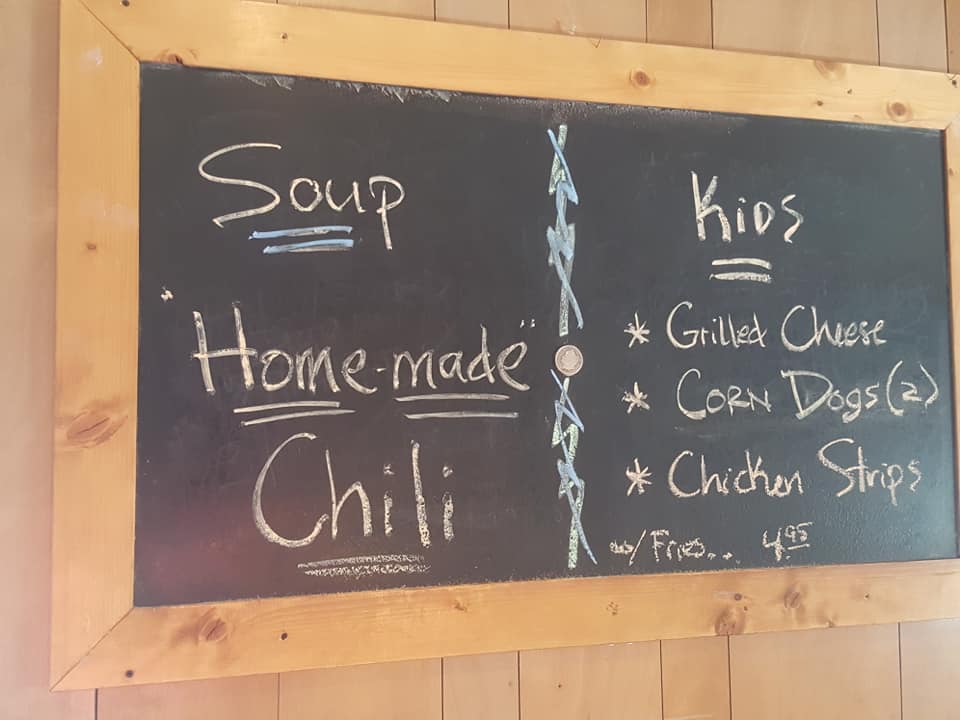 Soup
"Home-made"
Chili
Kids
* Grilled Cheese
* Corn Dogs (2)
* Chicken Strips
w/ Fries.. 4.95